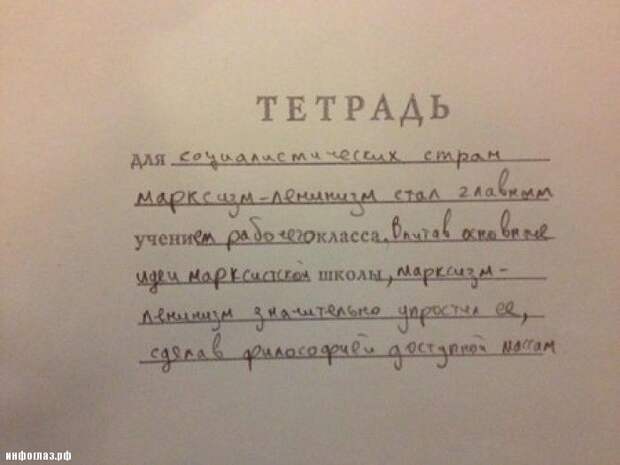 ТЕТРАДЬ
для социалистических стран
марксизм-ленинизм стал главным
учением рабочего класса. Впитав основные
идеи марксистской школы, марксизм-
ленинизм значительно упростил ее,
сделав философией доступной массам
инфоглаз.рф